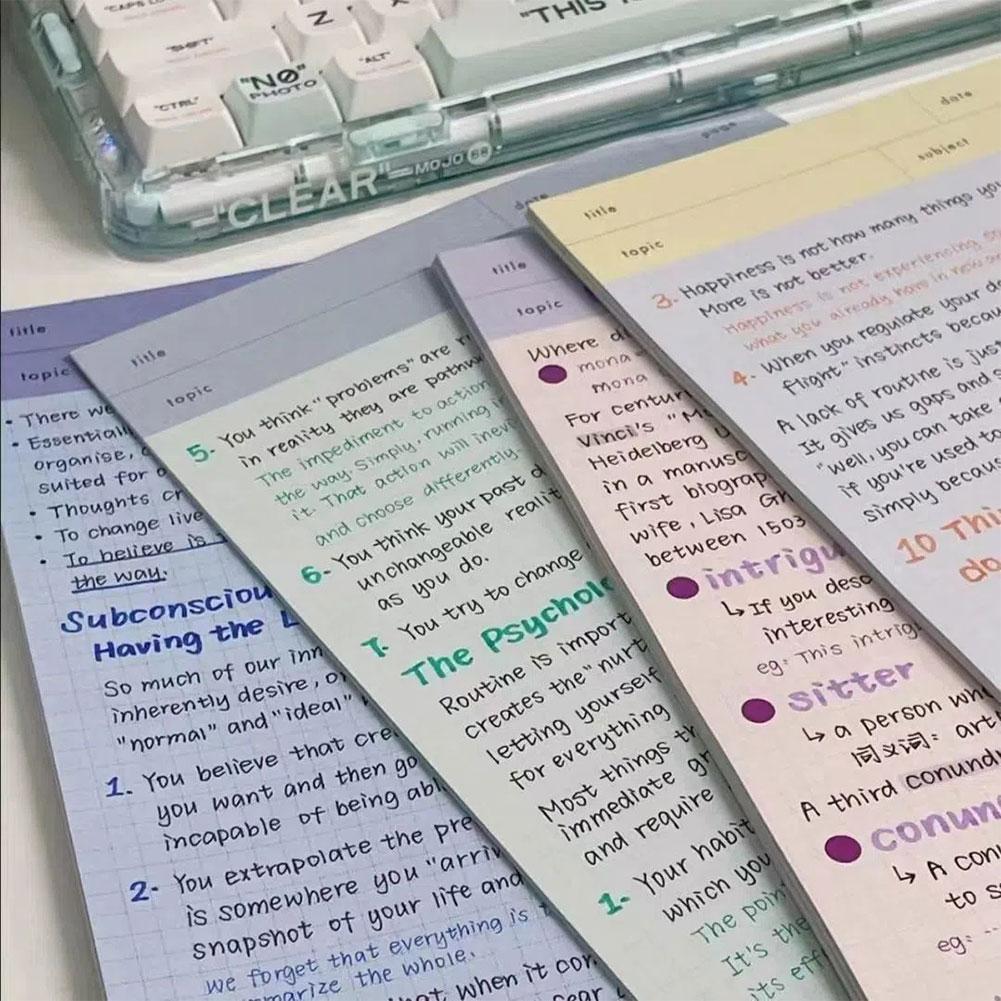 "SHIFT"
Z
X
"THIS
"CTRL"
"NO"
PHOTO
"ALT"
"CLEAR"
MOJO 68
title
topic
• There we
• Essentiall
organise,
suited for
• Thoughts cr
• To change live
• To believe is
the way.
Subconsciou
Having the L
So much of our inn
inherently desire, o
"normal" and "ideal"
1. You believe that cre
you want and then go
incapable of being abl
2- You extrapolate the pre
is somewhere you "arriv
snapshot of your life and
we forget that everything is
the whole.
that when it com
page
date
title
topic
5. You think "problems" are r
in reality they are pathw
The impediment to action
the way. Simply, running i
it. That action will inevi
and choose differently
6- You think your past d
unchangeable realit
as you do.
7. You try to change
The Psychol
Routine is import
creates the "nurt
letting yourself
for everything
Most things th
immediate gr
and require
1- Your habit
which you
The poin
It's the
its eff
title
topic
Where d
mona
mona
For centur
Vinci's "M
Heidelberg U
in a manusc
first biograp
wife, Lisa Gh
between 1503
intrigu
↳ If you desc
interesting
eg: This intrig
sitter
↳ a person wh
同义词: art
A third conund
conun
↳ A con
to s
eg: --
date
title
subject
topic
3. Happiness is not how many things yo
More is not better.
Happiness is not experiencing so
what you already have in new an
4. When you regulate your d
flight" instincts becau
A lack of routine is just
It gives us gaps and s
"Well, you can take
if you're used to
simply becaus
10 Thi
do